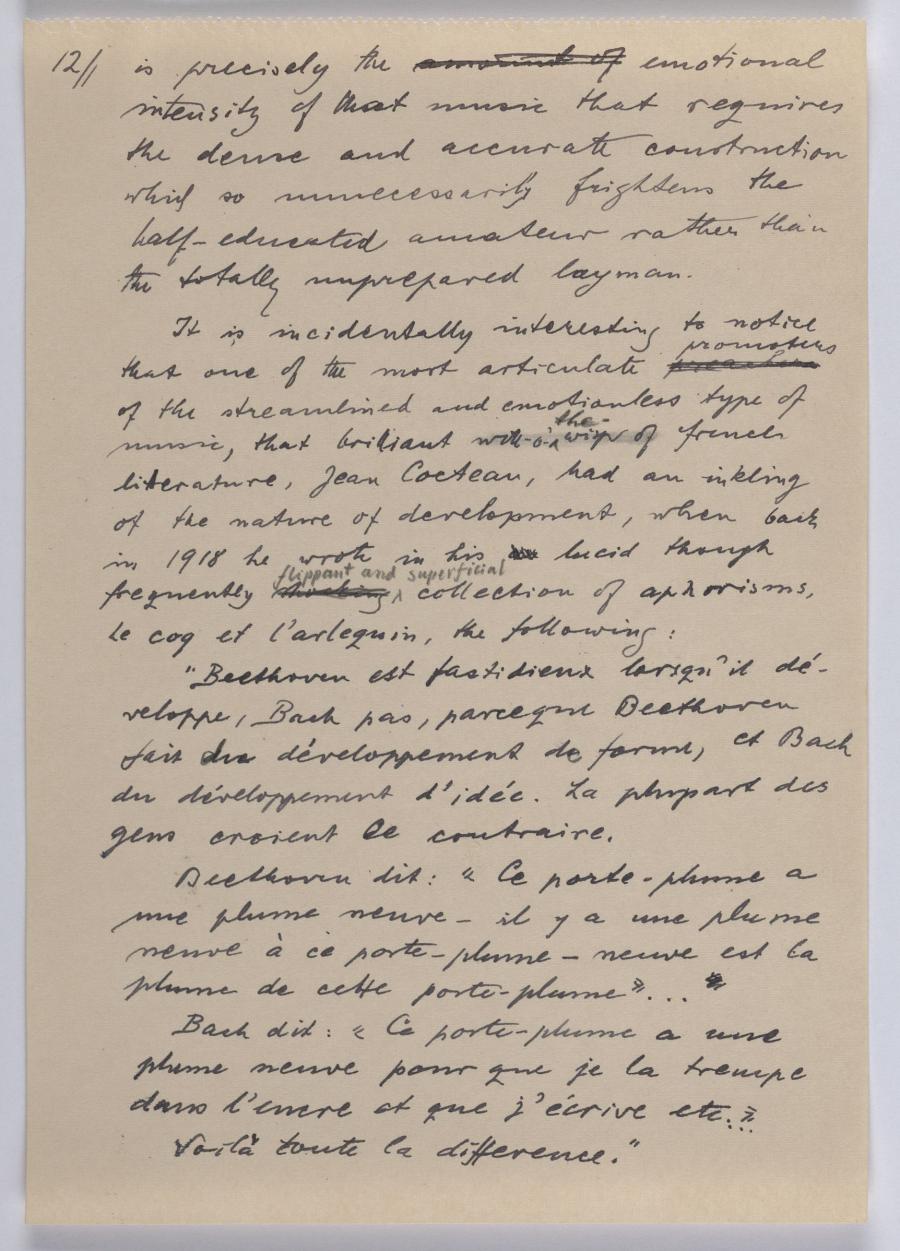 12/1 is precisely the amount of emotional
intensity of that music that requires
the dense and accurate construction
which so unnecessarily frightens the
half-educated amateur rather than
the totally unprepared layman.
It is incidentally interesting to notice
promoters
that one of the most articulate preachers
of the streamlined and emotionless type of
the-
music, that brilliant will-o'-wisp of french
literature, Jean Cocteau, had an inkling
of the nature of development, when back
in 1918 he wrote in his lucid though
flippant and superficial
frequently shocking collection of aphorisms,
Le coq et l'arlequin, the following:
"Beethoven est fastidieux lorsqu'il dé-
veloppe, Bach pas, parceque Beethoven
fait du développement de forme, et Bach
du développement d'idée. La plupart des
gens croient le contraire.
Beethoven dit: « Ce porte-plume a
une plume neuve – il y a une plume
neuve à ce porte-plume – neuve est la
plume de cette porte-plume »...
Bach dit: « Ce porte-plume a une
plume neuve pour que je la trempe
dans l'encre et que j'écrive etc.»
Voilà toute la difference."